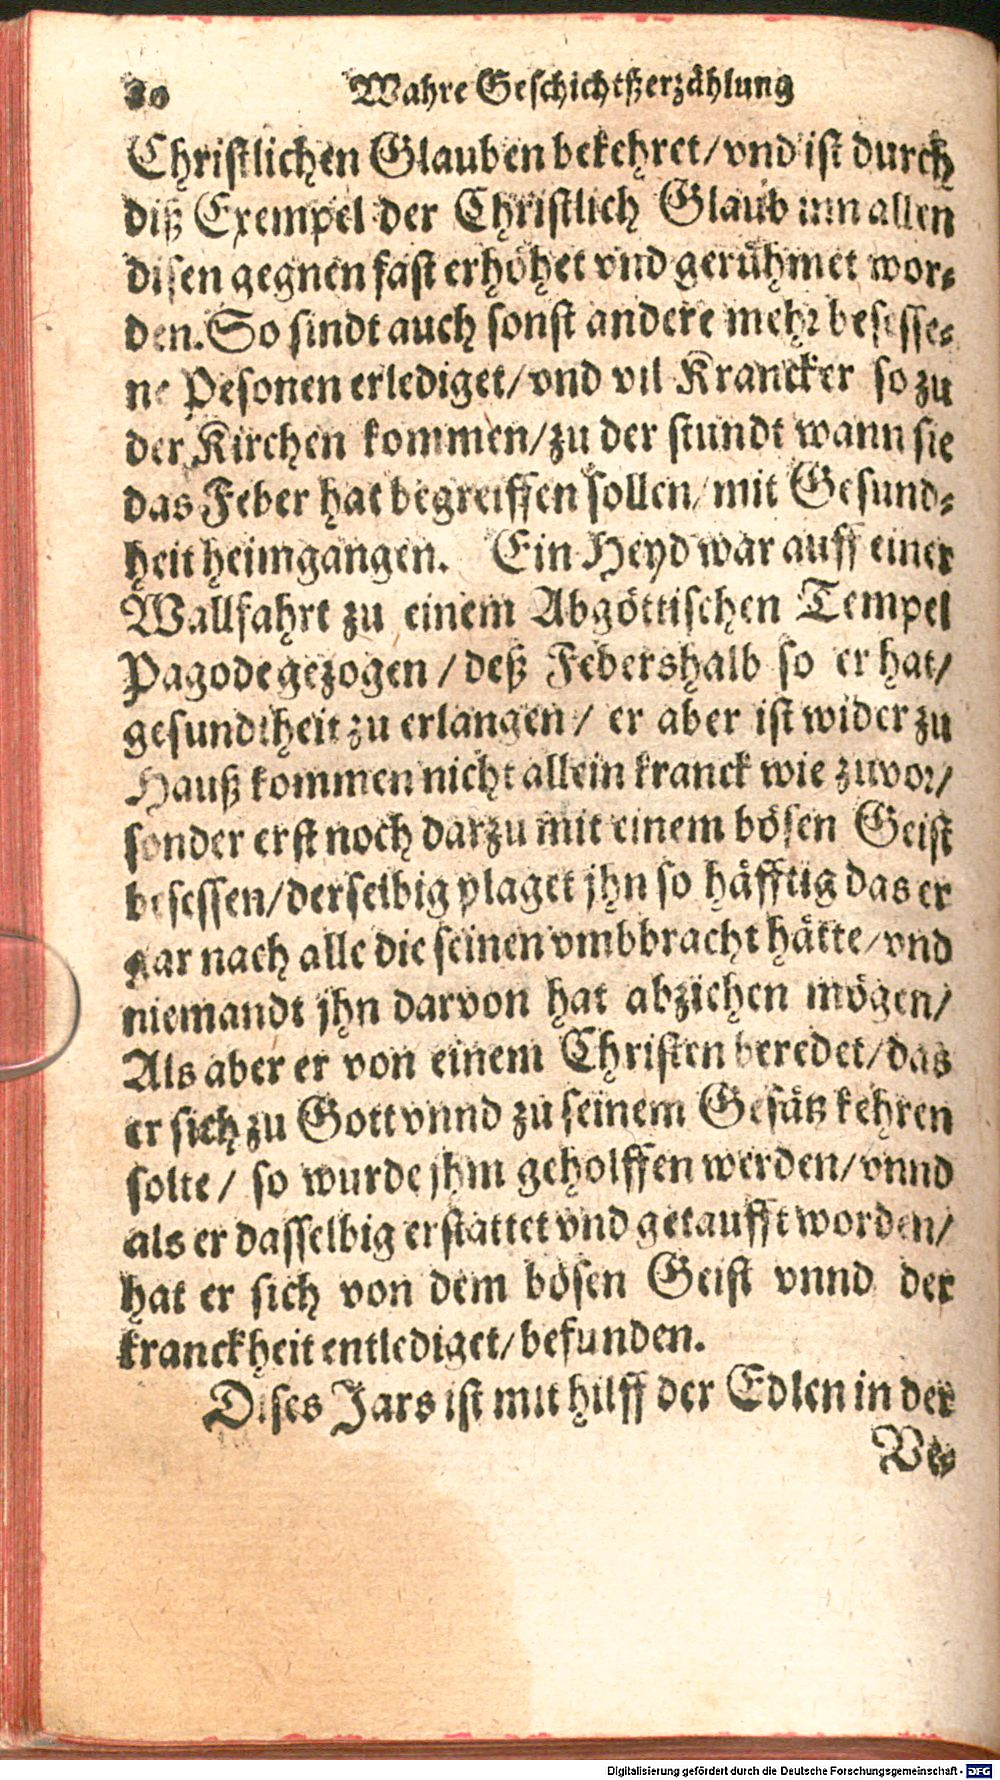 20 Wahre Geschichtßerzählung
Christlichen Glauben bekehret/vnd ist durch
diß Exempel der Christlich Glaub inn allen
disen gegnen fast erhöhet vnd gerühmet wor-
den. So sindt auch sonst andere mehr besesse-
ne Pesonen erlediget/vnd vil Krancker so zu
der Kirchen kommen/zu der stundt wann sie
das Feber hat begreiffen sollen/mit Gesund-
heit heimgangen. Ein Heyd war auff einer
Wallfahrt zu einem Abgöttischen Tempel
Pagode gezogen/deß Febershalb so er hat/
gesundtheit zu erlangen/ er aber ist wider zu
Hauß kommen nicht allein kranck wie zuvor/
sonder erst noch darzu mit einem bösen Geist
besessen/derselbig plaget jhn so häfftig das er
gar nach alle die seinen vmbbracht hätte/vnd
niemandt jhn darvon hat abziehen mögen/
Als aber er von einem Christen beredet/das
er sich zu Gott vnnd zu seinem Gesätz kehren
solte/ so wurde jhm geholffen werden/vnnd
als er dasselbig erstattet vnd getaufft worden/
hat er sich von dem bösen Geist vnnd der
kranckheit entlediget/befunden.
Dises Jars ist mit hilff der Edlen in der
Ve-
Digitalisierung gefördert durch die Deutsche Forschungsgemeinschaft - DFG